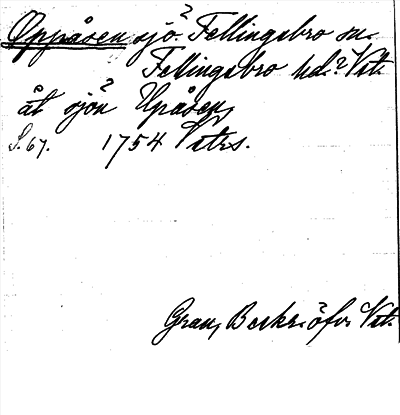 Oppåsen sjö? Fellingsbro sn.
Fellingsbro hd.? Vstl.
åt sjön? Upåsen,
S. 67. 1754 Vetrs.
Grau, Beskr. öfv. Vstl.